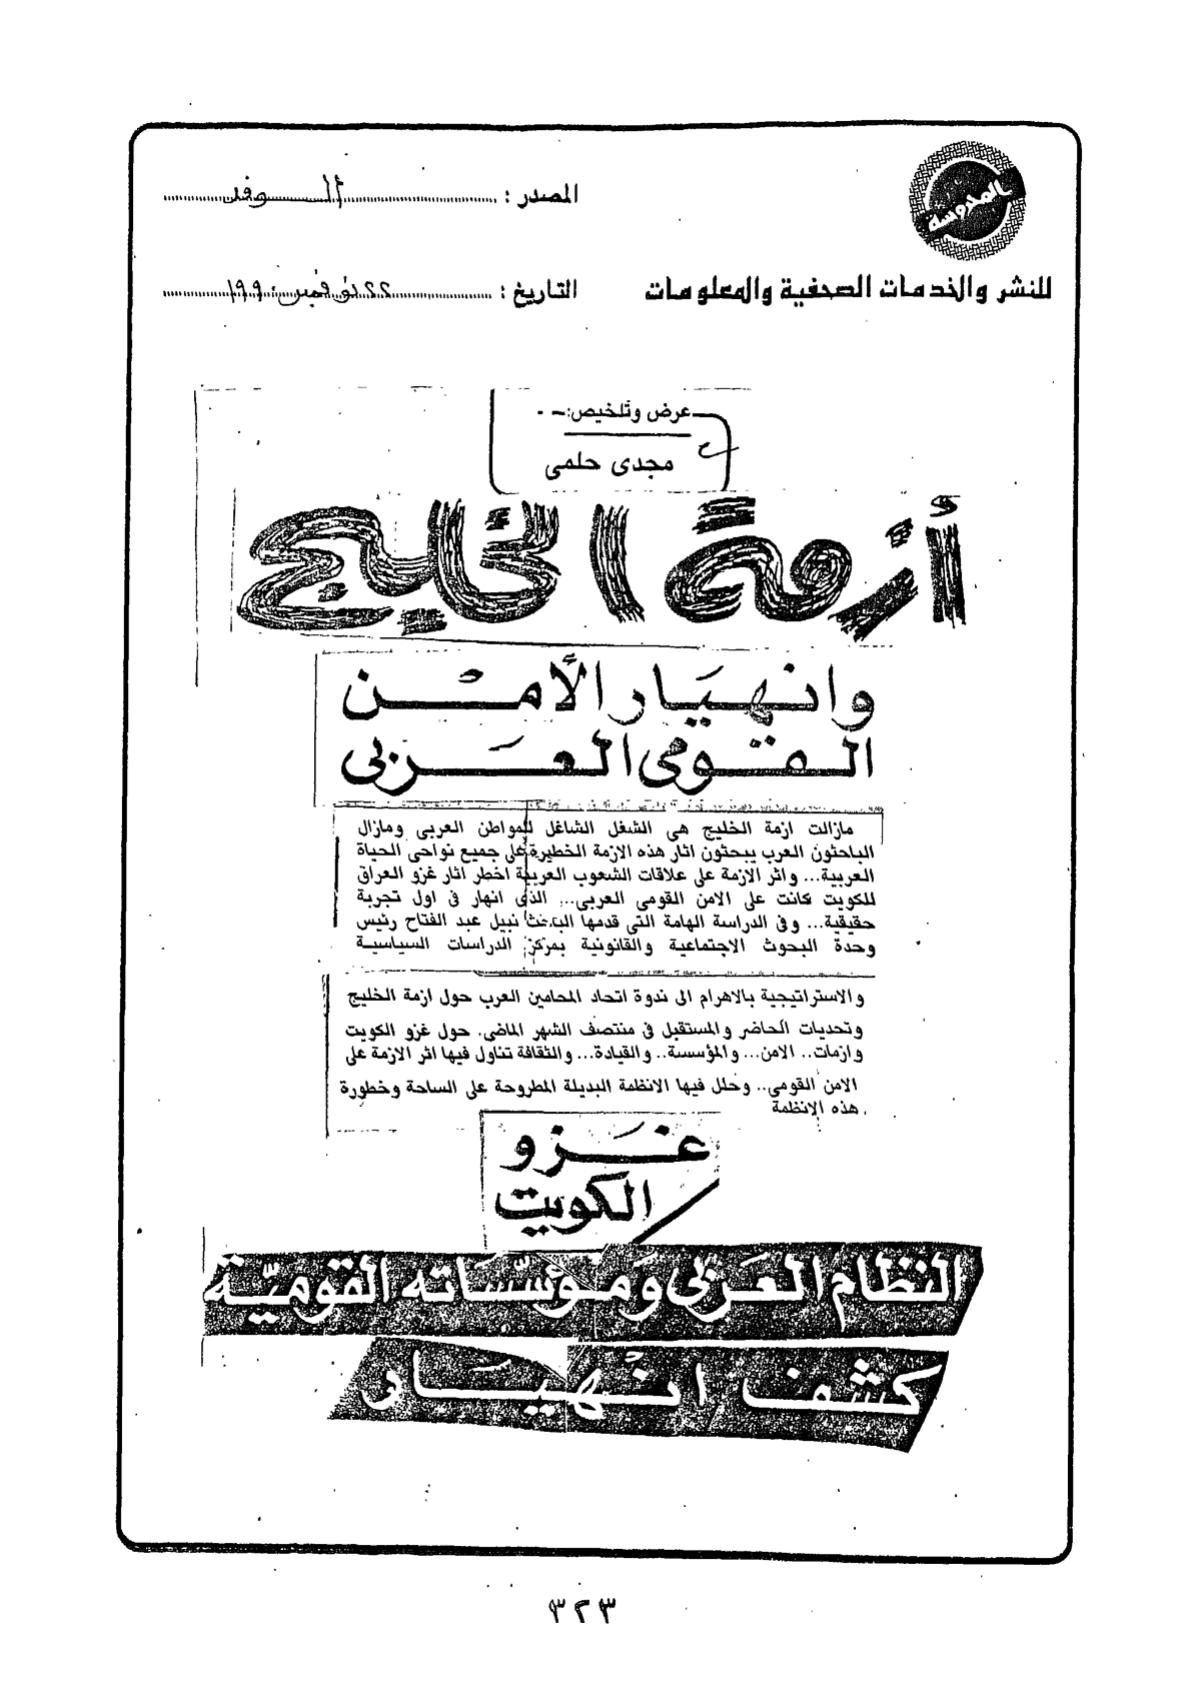 المدوسة
للنشر والخدمات الصحفية والمعلومات
المصدر : الوفد
التاريخ : ٢٢ نوفمبر ١٩٩٠
عرض وتلخيص:
مجدى حلمى
أزمة الخليج
وانهيار الأمن
القومى العربى
مازالت ازمة الخليج هى الشغل الشاغل للمواطن العربى ومازال
الباحثون العرب يبحثون اثار هذه الازمة الخطيرة على جميع نواحى الحياة
العربية... واثر الازمة على علاقات الشعوب العربية اخطر اثار غزو العراق
للكويت كانت على الامن القومى العربى... الذى انهار فى اول تجربة
حقيقية... وفى الدراسة الهامة التى قدمها الباحث نبيل عبد الفتاح رئيس
وحدة البحوث الاجتماعية والقانونية بمركز الدراسات السياسية
والاستراتيجية بالاهرام الى ندوة اتحاد المحامين العرب حول ازمة الخليج
وتحديات الحاضر والمستقبل فى منتصف الشهر الماضى. حول غزو الكويت
وازمات.. الامن... والمؤسسة.. والقيادة... والثقافة تناول فيها اثر الازمة على
الامن القومى.. وحلل فيها الانظمة البديلة المطروحة على الساحة وخطورة
هذه الانظمة
غزو
الكويت
النظام العربى ومؤسساته القومية
كشف انهيار
٣٢٣